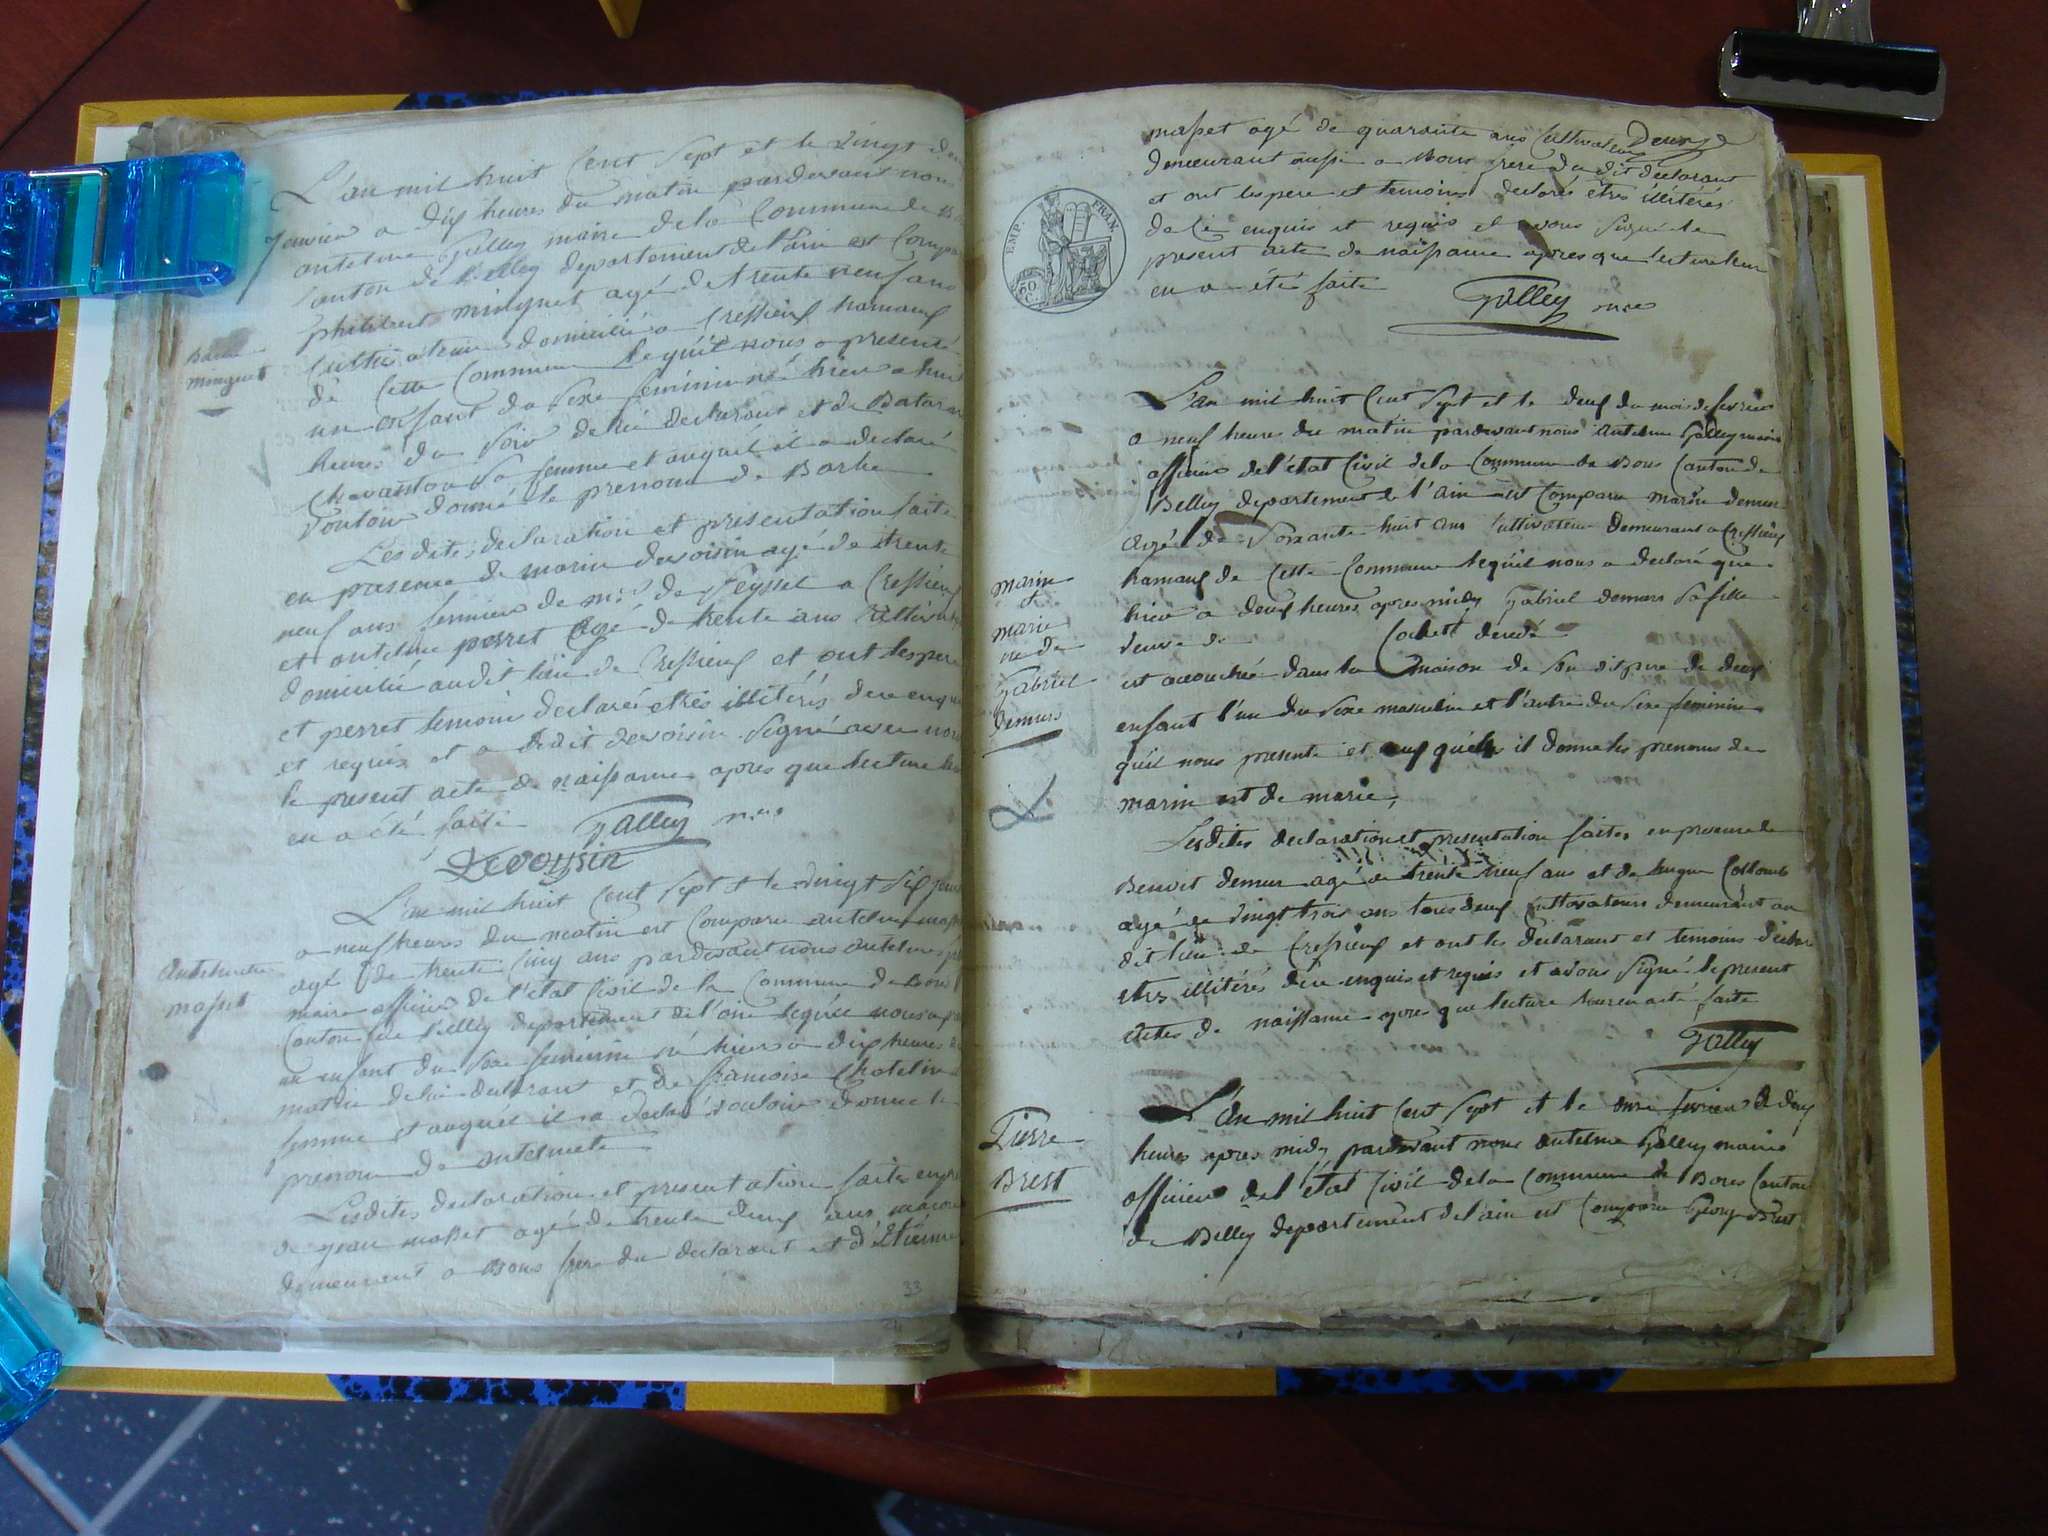 L'an mil huit Cent Sept et le vingt
Janvier a dix heures du matin pardevant nous
antelme Galley maire de la Commune de
Canton de Belley departement de l'ain est Comparu
philibert minguet agé de trente neuf ans
Cultivateur domicilié a Cressieux hamaux
de Cette Commune Lequil nous a presenté
un enfant du Sexe feminin né hier a huit
heures du Soir de lui declarant et de
Chavanton Sa femme et auquel il a declaré
Vouloir donné le prenom de Barbe
Barbe
minguet
Les dites declaration et presentation faite
en presence de marin devoisin agé de trente
neuf ans fermier de mr de Seyssel a Cressieux
et antelme perret agé de trente ans Cultivateur
domicilié audit lieu de Cressieux et ont les pere
et perret temoin declaré etres illitérés de ce enquis
et requis et a ledit devoisin Signé avec nous
le present acte de naissance apres que lecture leur
en a été faite Galley
Devoysin
L'an mil huit Cent Sept et le vingt Six
a neuf heures du matin est Comparu antelme
agé de trente Cinq ans pardevant nous antelme
maire officier de l'etat Civil de la Commune de Bons
Canton de Belley departement de l'ain lequil nous a
un enfant du Sexe feminin né hier a dix heures
matin de lui declarant et de francoise
femme et auquel il a declaré vouloir donne le
prenom de antelmete
Antelmete
masset
Les dites declaration et presentation faite
de jean masset agé de trente deux ans
demeurent a Bons frere du declarant et d'Etienne
33
masset agé de quarante ans Cultivateur
demeurant aussi a Bons frere du dit declarant
et ont les pere et temoins declarés etres illitérés
de Ce enquis et requis et avons Signé le
present acte de naissance apres que lecture leur
en a été faite Galley
EMP. FRAN.
50 C.
L'an mil huit Cent Sept et le deux du mois de fevrier
a neuf heures du matin pardevant nous Antelme Galley maire
officier de l'état Civil de la Commune de Bons Canton de
Belley departement de l'ain est Comparu marin demur
agé de Soixante huit ans Cultivateur demeurant a Cressieux
hamaux de Cette Commune lequil nous a declaré que
hier a deux heures apres midy Gabriel demurs Sa fille
veuve de Cochet décedé
est accouchée dans la maison de Son dit pere de deux
enfant l'un du Sexe masculin et l'autre du Sexe feminin
qu'il nous presente et il donne les prenoms de
marin et de marie,
marin
et
marie
né de
Gabriel
demurs
Les dites declaration et presentation faites en presence de
Benoit demur agé de trente neuf ans et de hugue Collomb
agé de vingt trois ans tous deux Cultivateurs demeurant au
dit lieu de Cressieux et ont les declarant et temoins declaré
etres illitérés de ce enquis et requis et avons Signé le present
actes de naissance apres que lecture leur en a été faite
Galley
L'an mil huit Cent Sept et le onze fevrier a deux
heures apres midy pardevant nous antelme Galley maire
officier de l'état Civil de la Commune de Bons Canton
de Belley departement de l'ain est Comparu Brest
Pierre
Brest